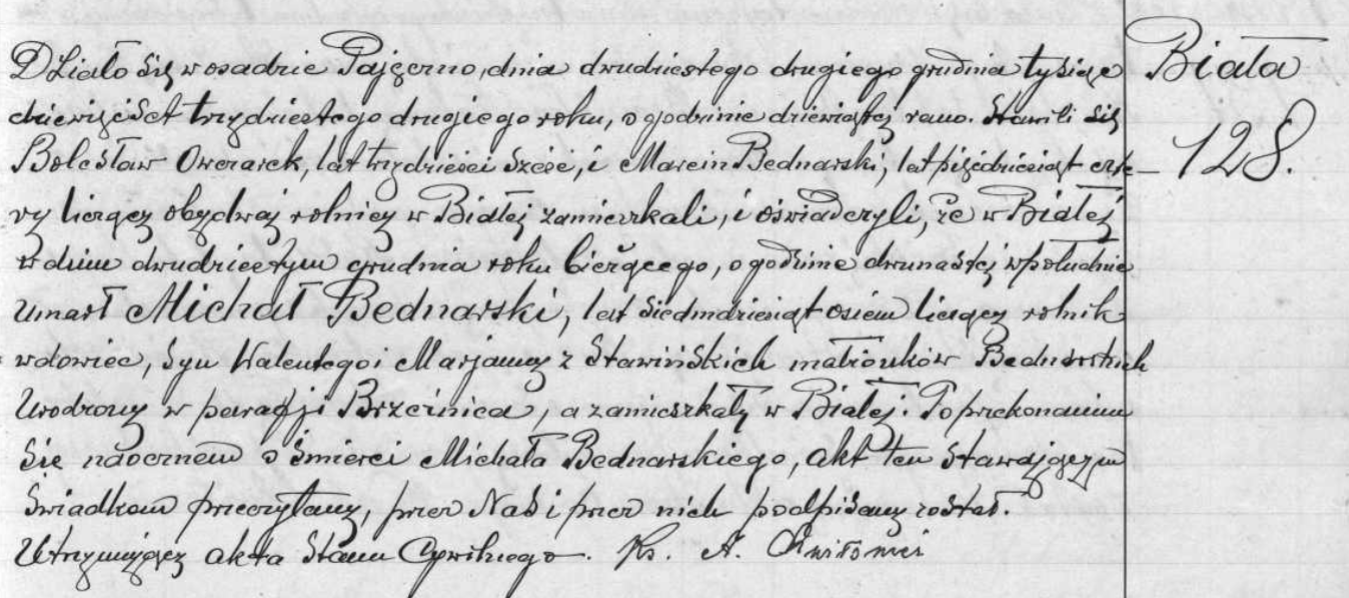 Działo się w osadzie Pajęczno, dnia dwudziestego drugiego grudnia tysiąc
dziewięćset trzydziestego drugiego roku, o godzinie dziewiątej rano. Stawili się
Bolesław Owczarek, lat trzydzieści sześć, i Marcin Bednarski, lat pięćdziesiąt czte-
ry liczący obydwaj rolnicy w Białej zamieszkali, i oświadczyli, że w Białej
w dniu dwudziestym grudnia roku bieżącego, o godzinie dwunastej w południe
umarł Michał Bednarski, lat siedmdziesiąt osiem liczący rolnik
wdowiec, syn Walentego i Marjanny z Stawińskich małżonków Bednarskich
urodzony w parafji Brzeźnica, a zamieszkały w Białej. Po przekonaniu
się naocznem o śmierci Michała Bednarskiego, akt ten stawającym
świadkom przeczytany, przez Nas i przez nich podpisany został.
Utrzymujący akta Stanu Cywilnego. Ks. A.
Biała
128.